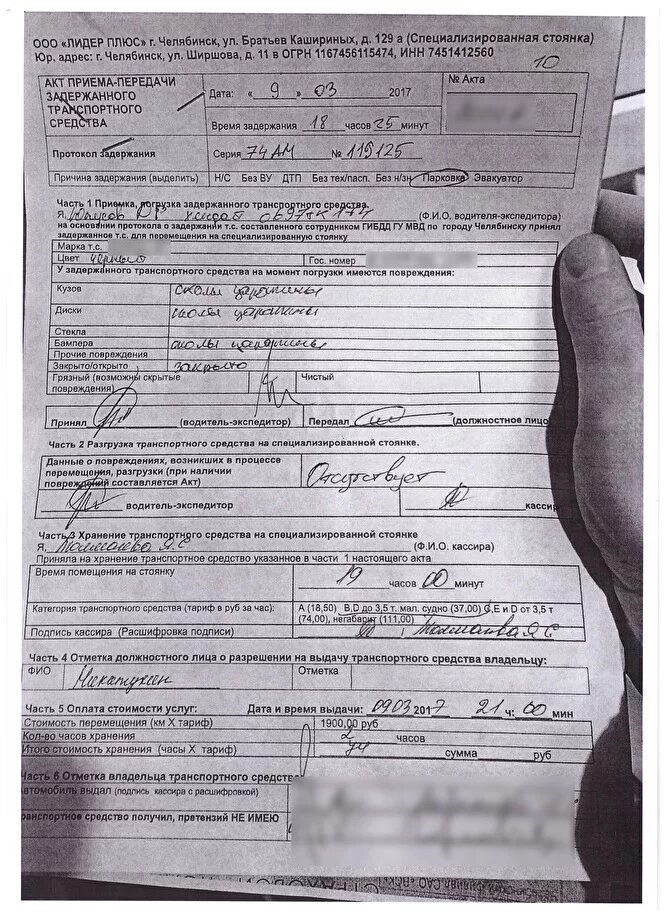 ООО «ЛИДЕР ПЛЮС» г. Челябинск, ул. Братьев Кашириных, д. 129 а (Специализированная стоянка)
Юр. адрес: г. Челябинск, ул. Ширшова, д. 11 в ОГРН 1167456115474, ИНН 7451412560
10
АКТ ПРИЕМА-ПЕРЕДАЧИ ЗАДЕРЖАННОГО ТРАНСПОРТНОГО СРЕДСТВА
Дата: « 9 » 03 2017
№ Акта
Время задержания 18 часов 25 минут
Протокол задержания
Серия 74АМ № 119125
Причина задержания (выделить) Н/С Без ВУ ДТП Без тех/пасп. Без н/зн. Парковка Эвакуатор
Часть 1 Приемка, погрузка задержанного транспортного средства.
Я, (Ф.И.О. водителя-экспедитора)
на основании протокола о задержании т.с. составленного сотрудником ГИБДД ГУ МВД по городу Челябинску принял
задержанное т.с. для перемещения на специализированную стоянку
Марка т.с.
Цвет черный Гос. номер
У задержанного транспортного средства на момент погрузки имеются повреждения:
Кузов сколы царапины
Диски сколы царапины
Стекла
Бампера сколы царапины
Прочие повреждения
Закрыто/открыто закрыто
Грязный (возможны скрытые повреждения) Чистый
Принял (водитель-экспедитор) Передал (должностное лицо
Часть 2 Разгрузка транспортного средства на специализированной стоянке.
Данные о повреждениях, возникших в процессе
перемещения, разгрузки (при наличии
повреждений составляется Акт)
Отсутствует
водитель-экспедитор кассир
Часть 3 Хранение транспортного средства на специализированной стоянке
Я, (Ф.И.О. кассира)
Приняла на хранение транспортное средство указанное в части 1 настоящего акта
Время помещения на стоянку 19 часов 00 минут
Категория транспортного средства (тариф в руб за час): А (18,50) B,D до 3,5 т. мал. судно (37,00) C,E и D от 3,5 т
(74,00), негабарит (111,00)
Подпись кассира (Расшифровка подписи)
Часть 4 Отметка должностного лица о разрешении на выдачу транспортного средства владельцу:
ФИО Отметка
Часть 5 Оплата стоимости услуг: Дата и время выдачи: 09.03 2017 21 ч: 00 мин
Стоимость перемещения (км Х тариф) 1900,00 руб
Кол-во часов хранения 2 часов
Итого стоимость хранения (часы Х тариф) 74 сумма руб
Часть 6 Отметка владельца транспортного средства
автомобиль выдал (подпись кассира с расшифровкой)
транспортное средство получил, претензий НЕ ИМЕЮ